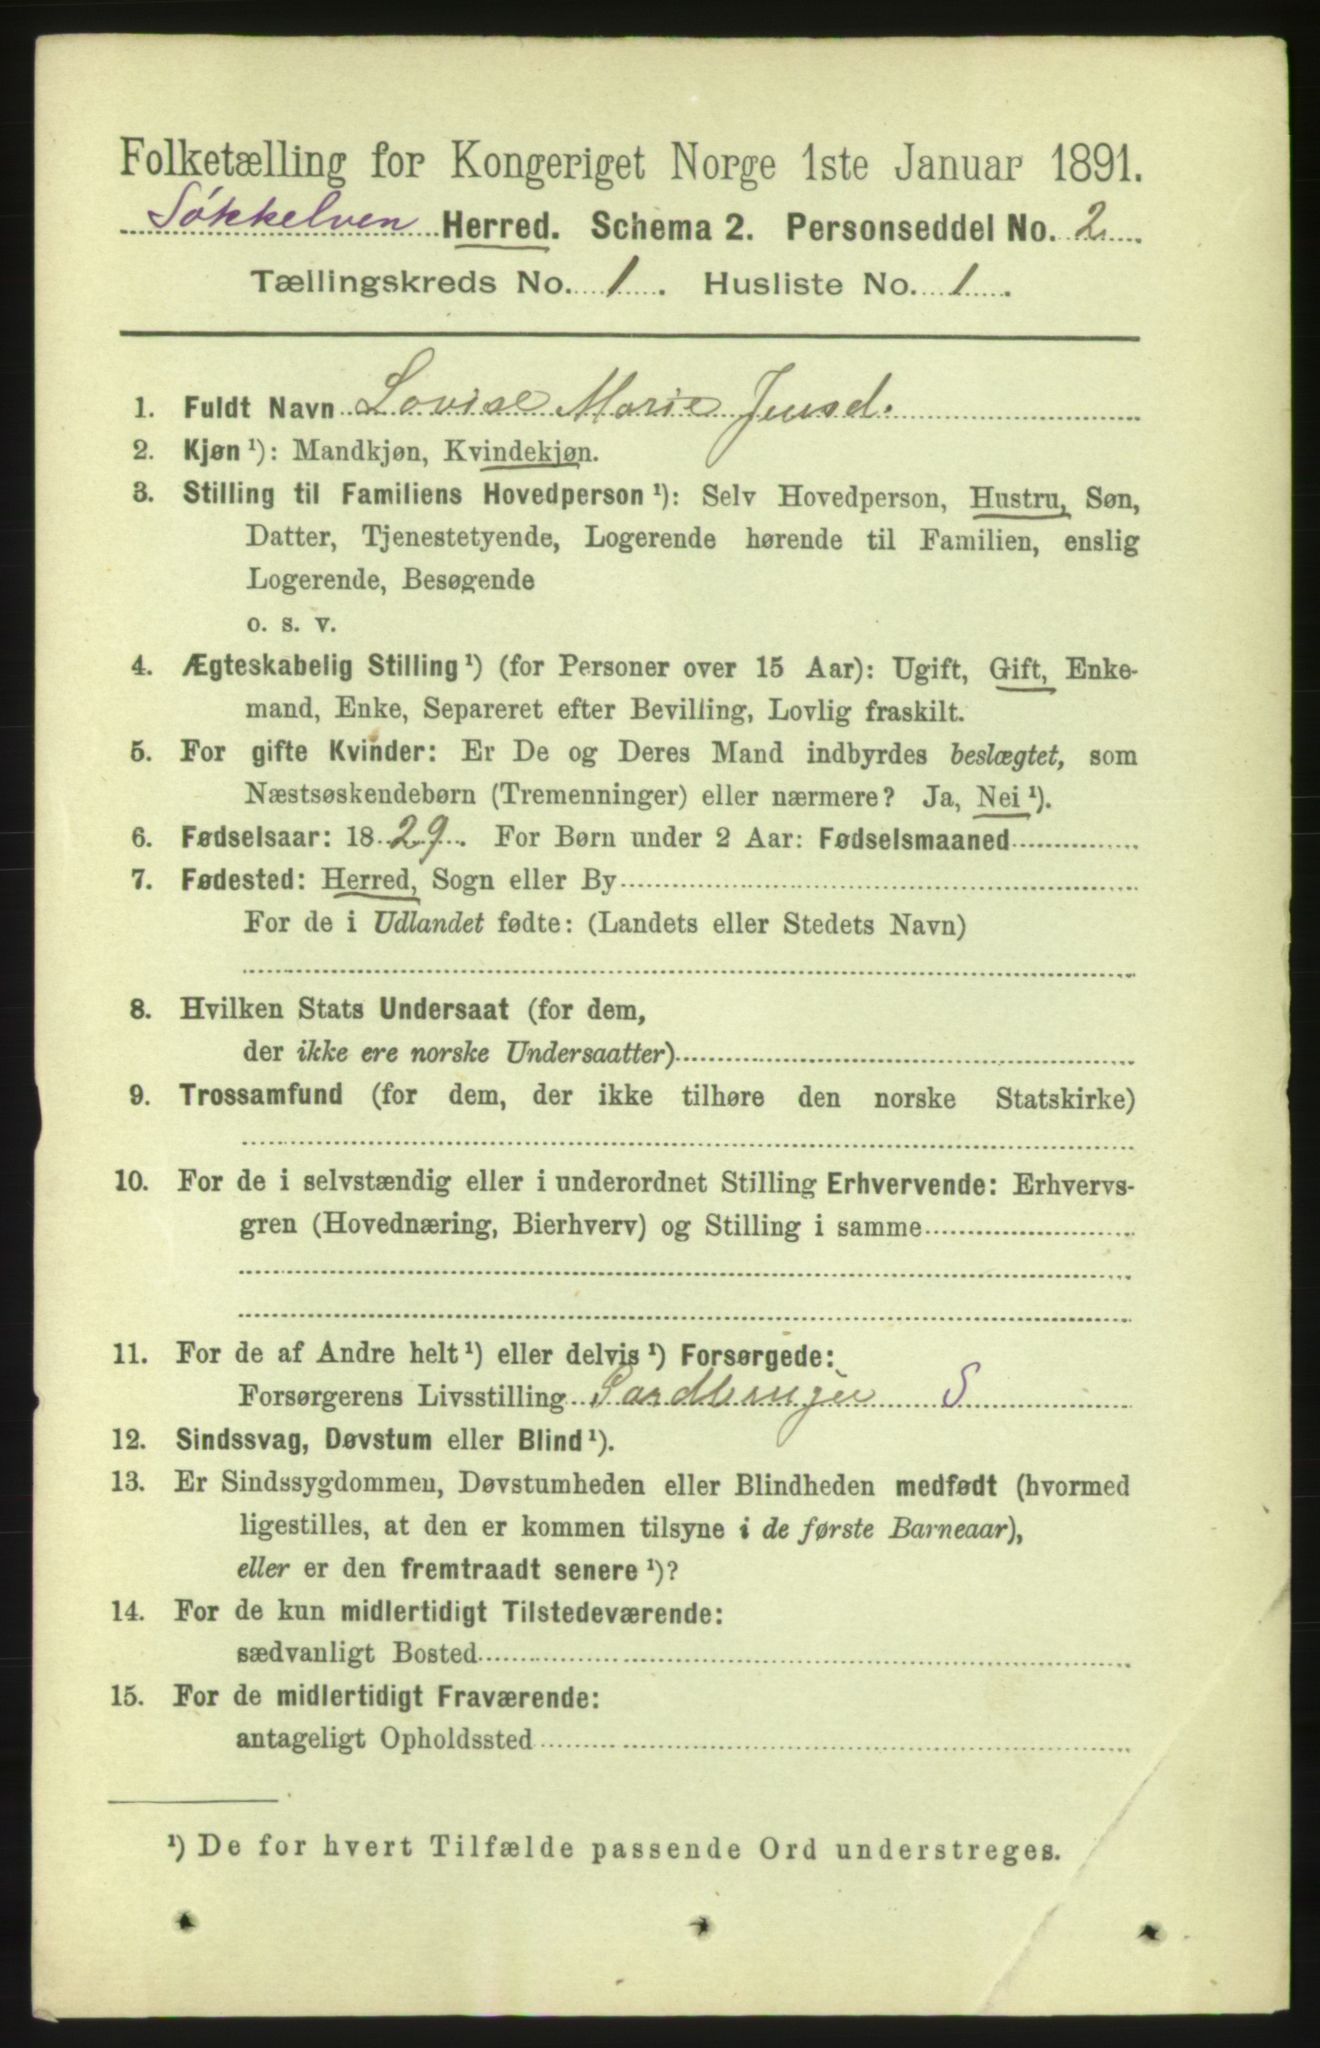 Folketælling for Kongeriget Norge 1ste Januar 1891.
Søkkelven Herred. Schema 2. Personseddel No. 2
Tællingskreds No. 1. Husliste No. 1.
1. Fuldt Navn Lovise Marie Jensd.
2. Kjøn ¹): Mandkjøn, Kvindekjøn.
3. Stilling til Familiens Hovedperson ¹): Selv Hovedperson, Hustru, Søn,
Datter, Tjenestetyende, Logerende hørende til Familien, enslig
Logerende, Besøgende
o. s. v.
4. Ægteskabelig Stilling ¹) (for Personer over 15 Aar): Ugift, Gift, Enke-
mand, Enke, Separeret efter Bevilling, Lovlig fraskilt.
5. For gifte Kvinder: Er De og Deres Mand indbyrdes beslægtet, som
Næstsøskendebørn (Tremenninger) eller nærmere? Ja, Nei ¹).
6. Fødselsaar: 1829. For Børn under 2 Aar: Fødselsmaaned
7. Fødested: Herred, Sogn eller By
For de i Udlandet fødte: (Landets eller Stedets Navn)
8. Hvilken Stats Undersaat (for dem,
der ikke ere norske Undersaatter)
9. Trossamfund (for dem, der ikke tilhøre den norske Statskirke)
10. For de i selvstændig eller i underordnet Stilling Erhvervende: Erhvervs-
gren (Hovednæring, Bierhverv) og Stilling i samme
11. For de af Andre helt ¹) eller delvis ¹) Forsørgede:
Forsørgerens Livsstilling Gardbruger S
12. Sindssvag, Døvstum eller Blind ¹).
13. Er Sindssygdommen, Døvstumheden eller Blindheden medfødt (hvormed
ligestilles, at den er kommen tilsyne i de første Barneaar),
eller er den fremtraadt senere ¹)?
14. For de kun midlertidigt Tilstedeværende:
sædvanligt Bosted
15. For de midlertidigt Fraværende:
antageligt Opholdssted
¹) De for hvert Tilfælde passende Ord understreges.